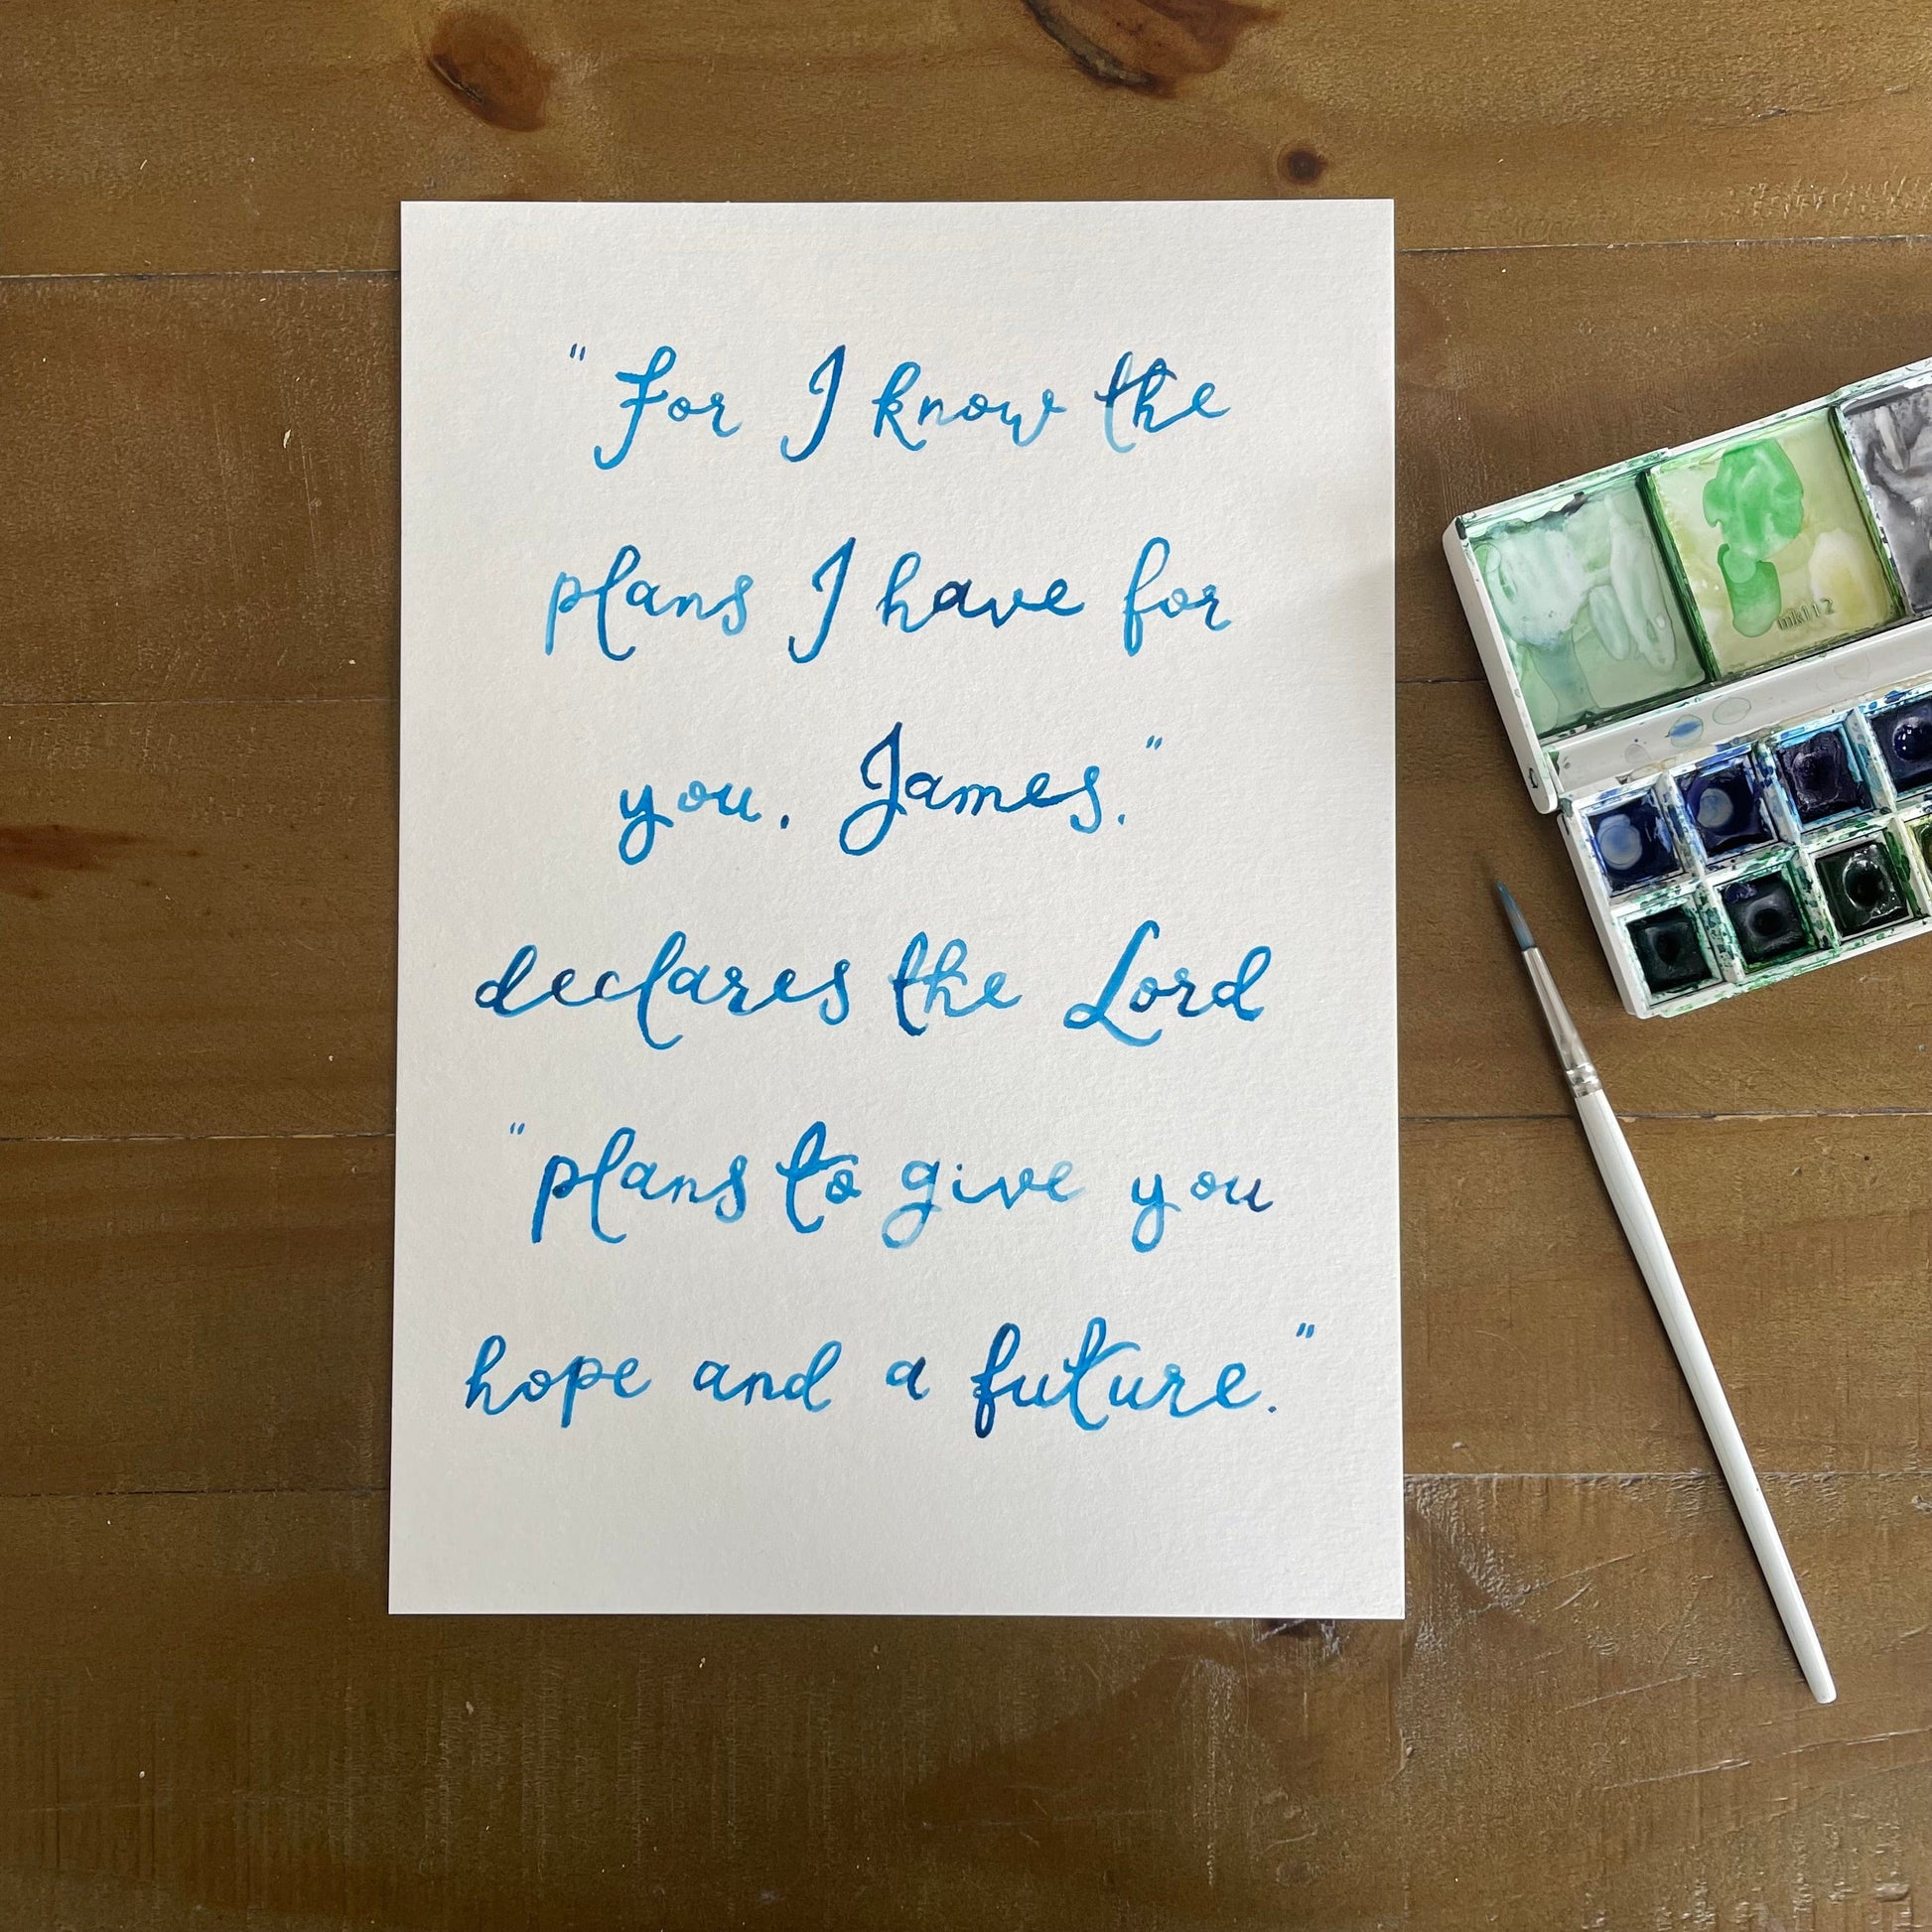 "For I know the
plans I have for
you, James."
declares the Lord
"plans to give you
hope and a future."